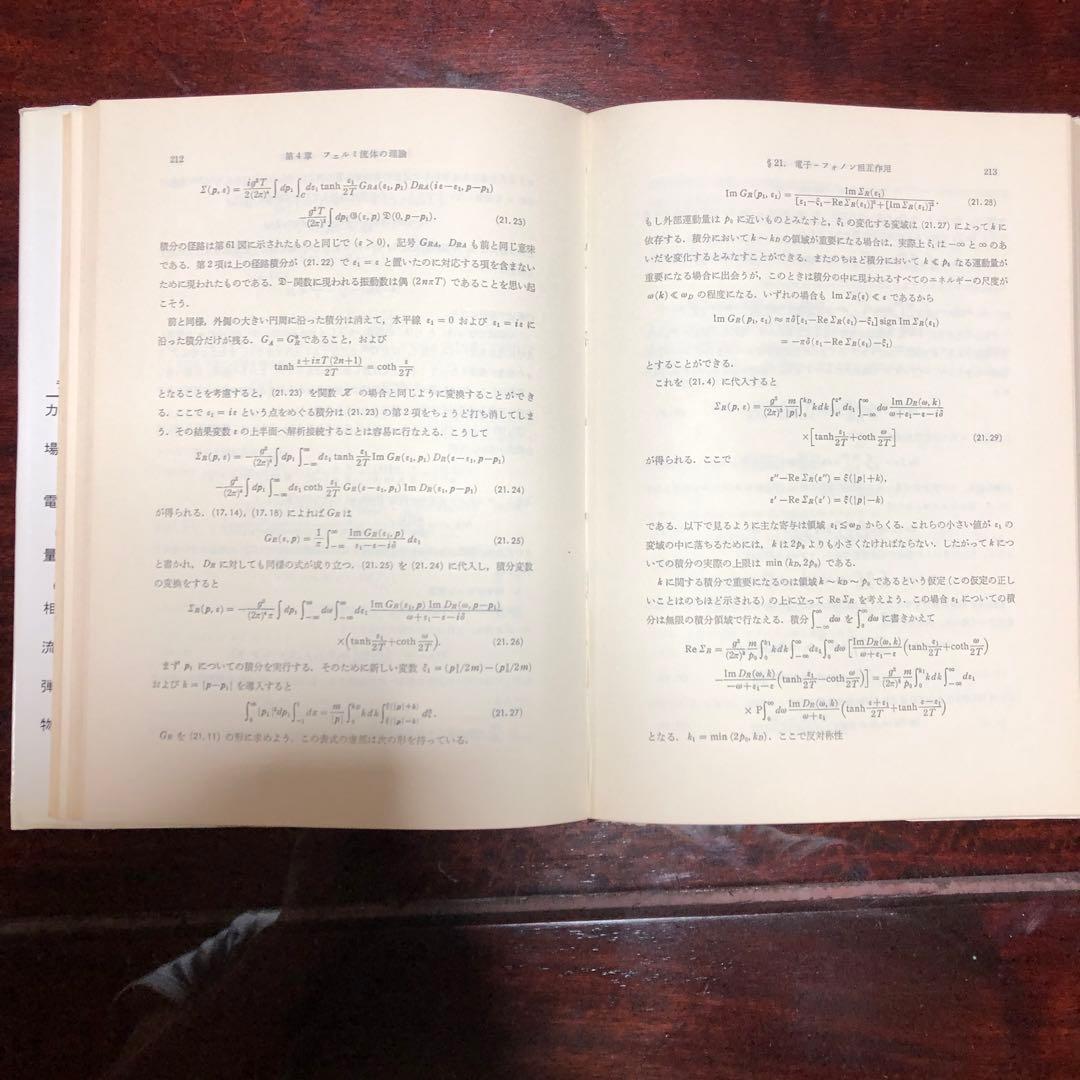 212
第4章 フェルミ流体の理論
Σ(p, ε) = ig²T/2(2π)⁴ ∫dp₁ ∫_C dε₁ tanh ε₁/2T G_RA(ε₁, p₁) D_RA(iε−ε₁, p−p₁)
−g²T/(2π)³ ∫dp₁ 𝔊(ε, p) 𝔇(0, p−p₁). (21.23)
積分の径路は第61図に示されたものと同じで (ε > 0), 記号 G_RA, D_RA も前と同じ意味
である. 第2項は上の径路積分が (21.22) で ε₁ = ε と置いたのに対応する項を含まない
ために現われたものである. 𝔇-関数に現われる振動数は偶 (2nπT) であることを思い起
こそう.
前と同様, 外側の大きい円周に沿った積分は消えて, 水平線 ε₁ = 0 および ε₁ = iε に
沿った積分だけが残る. G_A = G_R* であること, および
tanh ε+iπT(2n+1)/2T = coth ε/2T
となることを考慮すると, (21.23) を関数 の場合と同じように変換することができ
る. ここで ε₁ = iε という点をめぐる積分は (21.23) の第2項をちょうど打ち消してしま
う. その結果変数 ε の上半面へ解析接続することは容易に行なえる. こうして
Σ_R(p, ε) = −g²/(2π)⁴ ∫dp₁ ∫_{−∞}^{∞} dε₁ tanh ε₁/2T Im G_R(ε₁, p₁) D_R(ε−ε₁, p−p₁)
−g²/(2π)⁴ ∫dp₁ ∫_{−∞}^{∞} dε₁ coth ε₁/2T G_R(ε−ε₁, p₁) Im D_R(ε₁, p−p₁) (21.24)
が得られる. (17.14), (17.18) によれば G_R は
G_R(ε, p) = 1/π ∫_{−∞}^{∞} Im G_R(ε₁, p)/ε₁−ε−iδ dε₁ (21.25)
と書かれ, D_R に対しても同様の式が成り立つ. (21.25) を (21.24) に代入し, 積分変数
の変換をすると
Σ_R(p, ε) = −g²/(2π)⁴π ∫dp₁ ∫_{−∞}^{∞} dω ∫_{−∞}^{∞} dε₁ Im G_R(ε₁, p) Im D_R(ω, p−p₁)/ω+ε₁−ε−iδ
×(tanh ε₁/2T + coth ω/2T). (21.26)
まず p₁ についての積分を実行する. そのために新しい変数 ξ₁ = (p₁²/2m)−(p₀²/2m)
および k = |p−p₁| を導入すると
∫₀^∞ |p₁|²dp₁ ∫_{−1}^{1} dx = m/|p| ∫₀^{k_D} kdk ∫_{ξ(|p|−k)}^{ξ(|p|+k)} dξ. (21.27)
G_R を (21.11) の形に求めよう. この表式の虚部は次の形を持っている.
§21. 電子-フォノン相互作用
213
Im G_R(p₁, ε₁) = Im Σ_R(ε₁)/[ε₁−ξ₁−Re Σ_R(ε₁)]²+[Im Σ_R(ε₁)]². (21.28)
もし外部運動量は p₀ に近いものとみなすと, ξ₁ の変化する変域は (21.27) によって k に
依存する. 積分において k∼k_D の領域が重要になる場合は, 実際上 ξ₁ は −∞ と ∞ のあ
いだを変化するとみなすことができる. またのちほど積分において k ≪ p₀ なる運動量が
重要になる場合に出会うが, このときは積分の中に現われるすべてのエネルギーの尺度が
ω(k) ≪ ω_D の程度になる. いずれの場合も Im Σ_R(ε) ≪ ε であるから
Im G_R(p₁, ε₁) ≈ πδ[ε₁−Re Σ_R(ε₁)−ξ₁] sign Im Σ_R(ε₁)
= −πδ(ε₁−Re Σ_R(ε₁)−ξ₁)
とすることができる.
これを (21.4) に代入すると
Σ_R(p, ε) = g²/(2π)³ m/|p| ∫₀^{k_D} kdk ∫_{ε′}^{ε″} dε₁ ∫_{−∞}^{∞} dω Im D_R(ω, k)/ω+ε₁−ε−iδ
×[tanh ε₁/2T + coth ω/2T] (21.29)
が得られる. ここで
ε″−Re Σ_R(ε″) = ξ(|p|+k),
ε′−Re Σ_R(ε′) = ξ(|p|−k)
である. 以下で見るように主な寄与は領域 ε₁ ≲ ω_D からくる. これらの小さい値が ε₁ の
変域の中に落ちるためには, k は 2p₀ よりも小さくなければならない. したがって k につ
いての積分の実際の上限は min (k_D, 2p₀) である.
k に関する積分で重要になるのは領域 k∼k_D∼p₀ であるという仮定 (この仮定の正し
いことはのちほど示される) の上に立って Re Σ_R を考えよう. この場合 ε₁ についての積
分は無限の積分領域で行なえる. 積分 ∫_{−∞}^{∞} dω を ∫₀^∞ dω に書きかえて
Re Σ_R = g²/(2π)³ m/p₀ ∫₀^{k₁} kdk ∫_{−∞}^{∞} dε₁ ∫₀^∞ dω [Im D_R(ω, k)/ω+ε₁−ε (tanh ε₁/2T + coth ω/2T)
−Im D_R(ω, k)/−ω+ε₁−ε (tanh ε₁/2T − coth ω/2T)] = g²/(2π)³ m/p₀ ∫₀^{k₁} kdk ∫_{−∞}^{∞} dε₁
× P∫₀^∞ dω Im D_R(ω, k)/ω+ε₁ (tanh ε+ε₁/2T + tanh ε₁−ε/2T)
となる. k₁ = min (2p₀, k_D). ここで反対称性
カ
場
電
量
相
流
弾
物